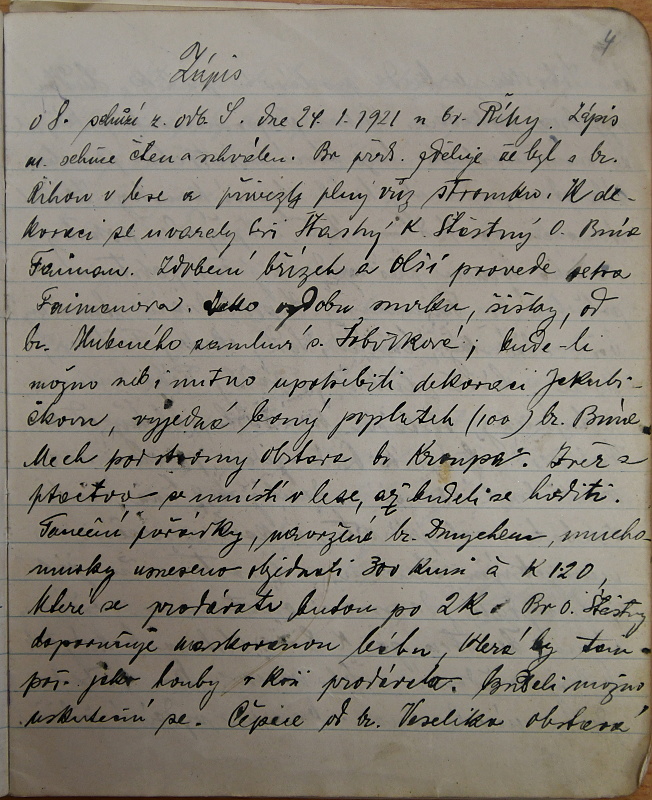 4
Zápis
o 8. schůzi z. odb. S. dne 24. 1. 1921 u br. Říhy. Zápis
m. schůze čten a schválen. Br před. sděluje že byl s br.
Říhou v lese a přivezly plný vůz stromků. K de-
koraci se uvarely bři Šťastný K. Šťastný O. Brůža
Faiman. Zdobení břízek a Olší provede setra
Faimanova. Jako ozdobu smrků, šišky, od
br. Hubeného zamluví s. Sobotková; bude-li
možno neb i nutno upotřebiti dekoraci Jakubí-
čkovu, vyjedná laný poplatek (100) br. Brůža
Mech pod stromy obstará br Kroupa. Zvěř a
ptactvo se umístí v lese, až budeli se hoditi.
Taneční pořádky, navržené br. Dmychem, mucho-
murky usneseno objednati 300 kusů à K 1·20,
které se prodávati budou po 2K. Br O. Šťastný
doporučuje maskovanou bábu, která by tam-
poř. jako houby v koši prodávala. Budeli možno
uskuteční se. Čepice od br. Veselíka obstará